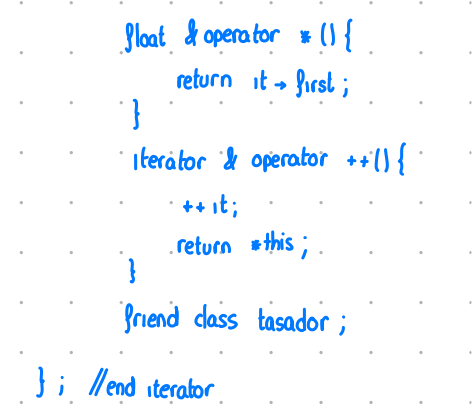 float & operator * () {
return it → first ;
}
iterator & operator ++() {
++ it;
return *this ;
}
friend class tasador ;
} ; //end iterator